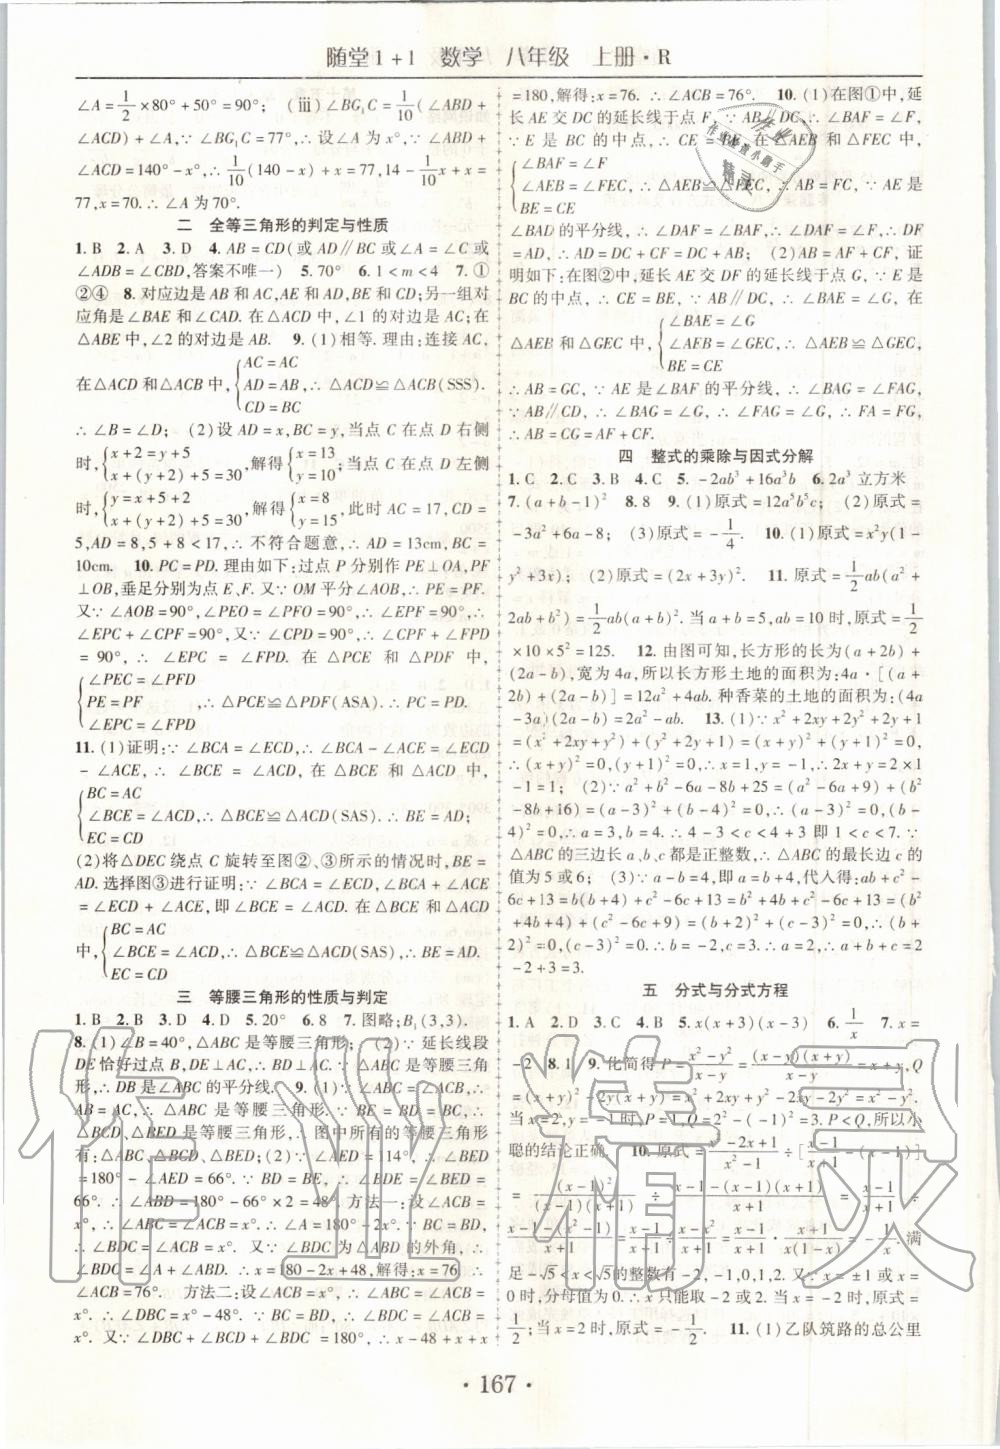 随堂1+1 数学 八年级 上册·R
∠A=1/2×80°+50°=90°；(ⅲ)∠BG₁C=1/10(∠ABD+
∠ACD)+∠A,∵∠BG₁C=77°,∴设∠A为x°,∵∠ABD+
∠ACD=140°-x°,∴1/10(140-x)+x=77,14-1/10x+x=
77,x=70.∴∠A为70°.
二 全等三角形的判定与性质
1. B 2. A 3. D 4. AB=CD(或AD∥BC或∠A=∠C或
∠ADB=∠CBD,答案不唯一) 5. 70° 6. 1<m<4 7. ①
②④ 8. 对应边是AB和AC,AE和AD,BE和CD;另一组对
应角是∠BAE和∠CAD. 在△ACD中,∠1的对边是AC;在
△ABE中,∠2的对边是AB. 9. (1)相等. 理由:连接AC,
在△ACD和△ACB中,{AC=AC
AD=AB,∴△ACD≌△ACB(SSS).
CD=BC
∴∠B=∠D; (2)设AD=x,BC=y,当点C在点D右侧
时,{x+2=y+5
x+(y+2)+5=30,解得{x=13
y=10;当点C在点D左侧
时,{y=x+5+2
x+(y+2)+5=30,解得{x=8
y=15,此时AC=17,CD=
5,AD=8,5+8<17,∴不符合题意,∴AD=13cm,BC=
10cm. 10. PC=PD. 理由如下:过点P分别作PE⊥OA,PF
⊥OB,垂足分别为点E、F. 又∵OM平分∠AOB,∴PE=PF.
又∵∠AOB=90°,∠PEO=∠PFO=90°,∴∠EPF=90°,∴
∠EPC+∠CPF=90°,又∵∠CPD=90°,∴∠CPF+∠FPD
=90°,∴∠EPC=∠FPD. 在△PCE和△PDF中,
{∠PEC=∠PFD
PE=PF,∴△PCE≌△PDF(ASA).∴PC=PD.
∠EPC=∠FPD
11. (1)证明:∵∠BCA=∠ECD,∴∠BCA-∠ACE=∠ECD
-∠ACE,∴∠BCE=∠ACD,在△BCE和△ACD中,
{BC=AC
∠BCE=∠ACD,∴△BCE≌△ACD(SAS).∴BE=AD;
EC=CD
(2)将△DEC绕点C旋转至图②、③所示的情况时,BE=
AD. 选择图③进行证明:∵∠BCA=∠ECD,∠BCA+∠ACE
=∠ECD+∠ACE,即∠BCE=∠ACD. 在△BCE和△ACD
中,{BC=AC
∠BCE=∠ACD,∴△BCE≌△ACD(SAS).∴BE=AD.
EC=CD
三 等腰三角形的性质与判定
1. B 2. B 3. D 4. D 5. 20° 6. 8 7. 图略;B₁(3,3).
8. (1)∠B=40°,△ABC是等腰三角形; (2)∵延长线段
DE恰好过点B,DE⊥AC,∴BD⊥AC,∵△ABC是等腰三角
形,∴DB是∠ABC的平分线. 9. (1)∵∠ABC=∠ACB,∴
AB=AC,∴△ABC是等腰三角形.∵BE=BD=BC,∴
△BCD、△BED是等腰三角形,∴图中所有的等腰三角形
有:△ABC、△BCD、△BED; (2)∵∠AED=114°,∴∠BED
=180°-∠AED=66°.∵BD=BE,∴∠BDE=∠BED=
66°.∴∠ABD=180°-66°×2=48°. 方法一:设∠ACB=
x°,∴∠ABC=∠ACB=x°.∴∠A=180°-2x°.∵BC=BD,
∴∠BDC=∠ACB=x°. 又∵∠BDC为△ABD的外角,∴
∠BDC=∠A+∠ABD.∴x=180-2x+48,解得:x=76.
∴∠ACB=76°. 方法二:设∠ACB=x°,∴∠ABC=∠ACB=
x°,∴∠DBC=x°-48°.∵BC=BD,∴∠BDC=∠ACB=
x°. 又∵∠DBC+∠BCD+∠BDC=180°,∴x-48+x+x
=180,解得:x=76.∴∠ACB=76°. 10. (1)在图①中,延
长AE交DC的延长线于点F,∵AB∥DC,∴∠BAF=∠F,
∵E是BC的中点,∴CE=BE,在△AEB和△FEC中,
{∠BAF=∠F
∠AEB=∠FEC,∴△AEB≌△FEC,∴AB=FC,∵AE是
BE=CE
∠BAD的平分线,∴∠DAF=∠BAF,∴∠DAF=∠F,∴DF
=AD,∴AD=DC+CF=DC+AB; (2)AB=AF+CF,证
明如下:在图②中,延长AE交DF的延长线于点G,∵E是
BC的中点,∴CE=BE,∵AB∥DC,∴∠BAE=∠G,在
△AEB和△GEC中,{∠BAE=∠G
∠AEB=∠GEC,∴△AEB≌△GEC,
BE=CE
∴AB=GC,∵AE是∠BAF的平分线,∴∠BAG=∠FAG,
∵AB∥CD,∴∠BAG=∠G,∴∠FAG=∠G,∴FA=FG,
∴AB=CG=AF+CF.
四 整式的乘除与因式分解
1. C 2. C 3. B 4. C 5. -2ab³+16a³b 6. 2a³立方米
7. (a+b-1)² 8. 8 9. (1)原式=12a⁵b⁵c; (2)原式=
-3a²+6a-8; (3)原式=-1/4. 10. (1)原式=x²y(1-
y²+3x); (2)原式=(2x+3y)². 11. 原式=1/2ab(a²+
2ab+b²)=1/2ab(a+b)². 当a+b=5,ab=10时,原式=1/2
×10×5²=125. 12. 由图可知,长方形的长为(a+2b)+
(2a-b),宽为4a,所以长方形土地的面积为:4a·[(a+
2b)+(2a-b)]=12a²+4ab. 种香菜的土地的面积为:(4a
-3a)(2a-b)=2a²-ab. 13. (1)∵x²+2xy+2y²+2y+1
=(x²+2xy+y²)+(y²+2y+1)=(x+y)²+(y+1)²=0,
∴(x+y)²=0,(y+1)²=0,∴x=1,y=-1.∴2x+y=2×1
-1=1; (2)∵a²+b²-6a-8b+25=(a²-6a+9)+(b²
-8b+16)=(a-3)²+(b-4)²=0,∴(a-3)²=0,(b-
4)²=0,∴a=3,b=4.∴4-3<c<4+3即1<c<7.∵
△ABC的三边长a、b、c都是正整数,∴△ABC的最长边c的
值为5或6; (3)∵a-b=4,∴a=b+4,代入得:ab+c²-
6c+13=b(b+4)+c²-6c+13=b²+4b+c²-6c+13=(b²
+4b+4)+(c²-6c+9)=(b+2)²+(c-3)²=0,∴(b+
2)²=0,(c-3)²=0.∴b=-2,c=3.∴a=2,∴a+b+c=2
-2+3=3.
五 分式与分式方程
1. A 2. D 3. C 4. B 5. x(x+3)(x-3) 6. 1/x 7. x=
-2 8. 1 9. 化简得P=(x²-y²)/(x-y)=(x-y)(x+y)/(x-y)=x+y,Q
=(x+y)²-2y(x+y)=x²+2xy+y²-2xy-2y²=x²-y²,
当x=2,y=-1时,P=1,Q=2²-(-1)²=3. P<Q,所以小
聪的结论正确. 10. 原式=(x²-2x+1)/(x²-1)÷[(x-1)/(x+1)-(x-1)]
=(x-1)²/(x-1)(x+1)÷(x-1-(x-1)(x+1))/(x+1)=(x-1)/(x+1)÷
(x-1-(x²-1))/(x+1)=(x-1)/(x+1)÷(x-x²)/(x+1)=(x-1)/(x+1)·(x+1)/(-x(x-1))=-1/x.∵满
足-√5<x<√5的整数有-2,-1,0,1,2. 又∵x=±1或x=
0时,分母值为0.∴x只能取-2或2. 当x=-2时,原式=
1/2;当x=2时,原式=-1/2. 11. (1)乙队筑路的总公里
·167·
作业精灵